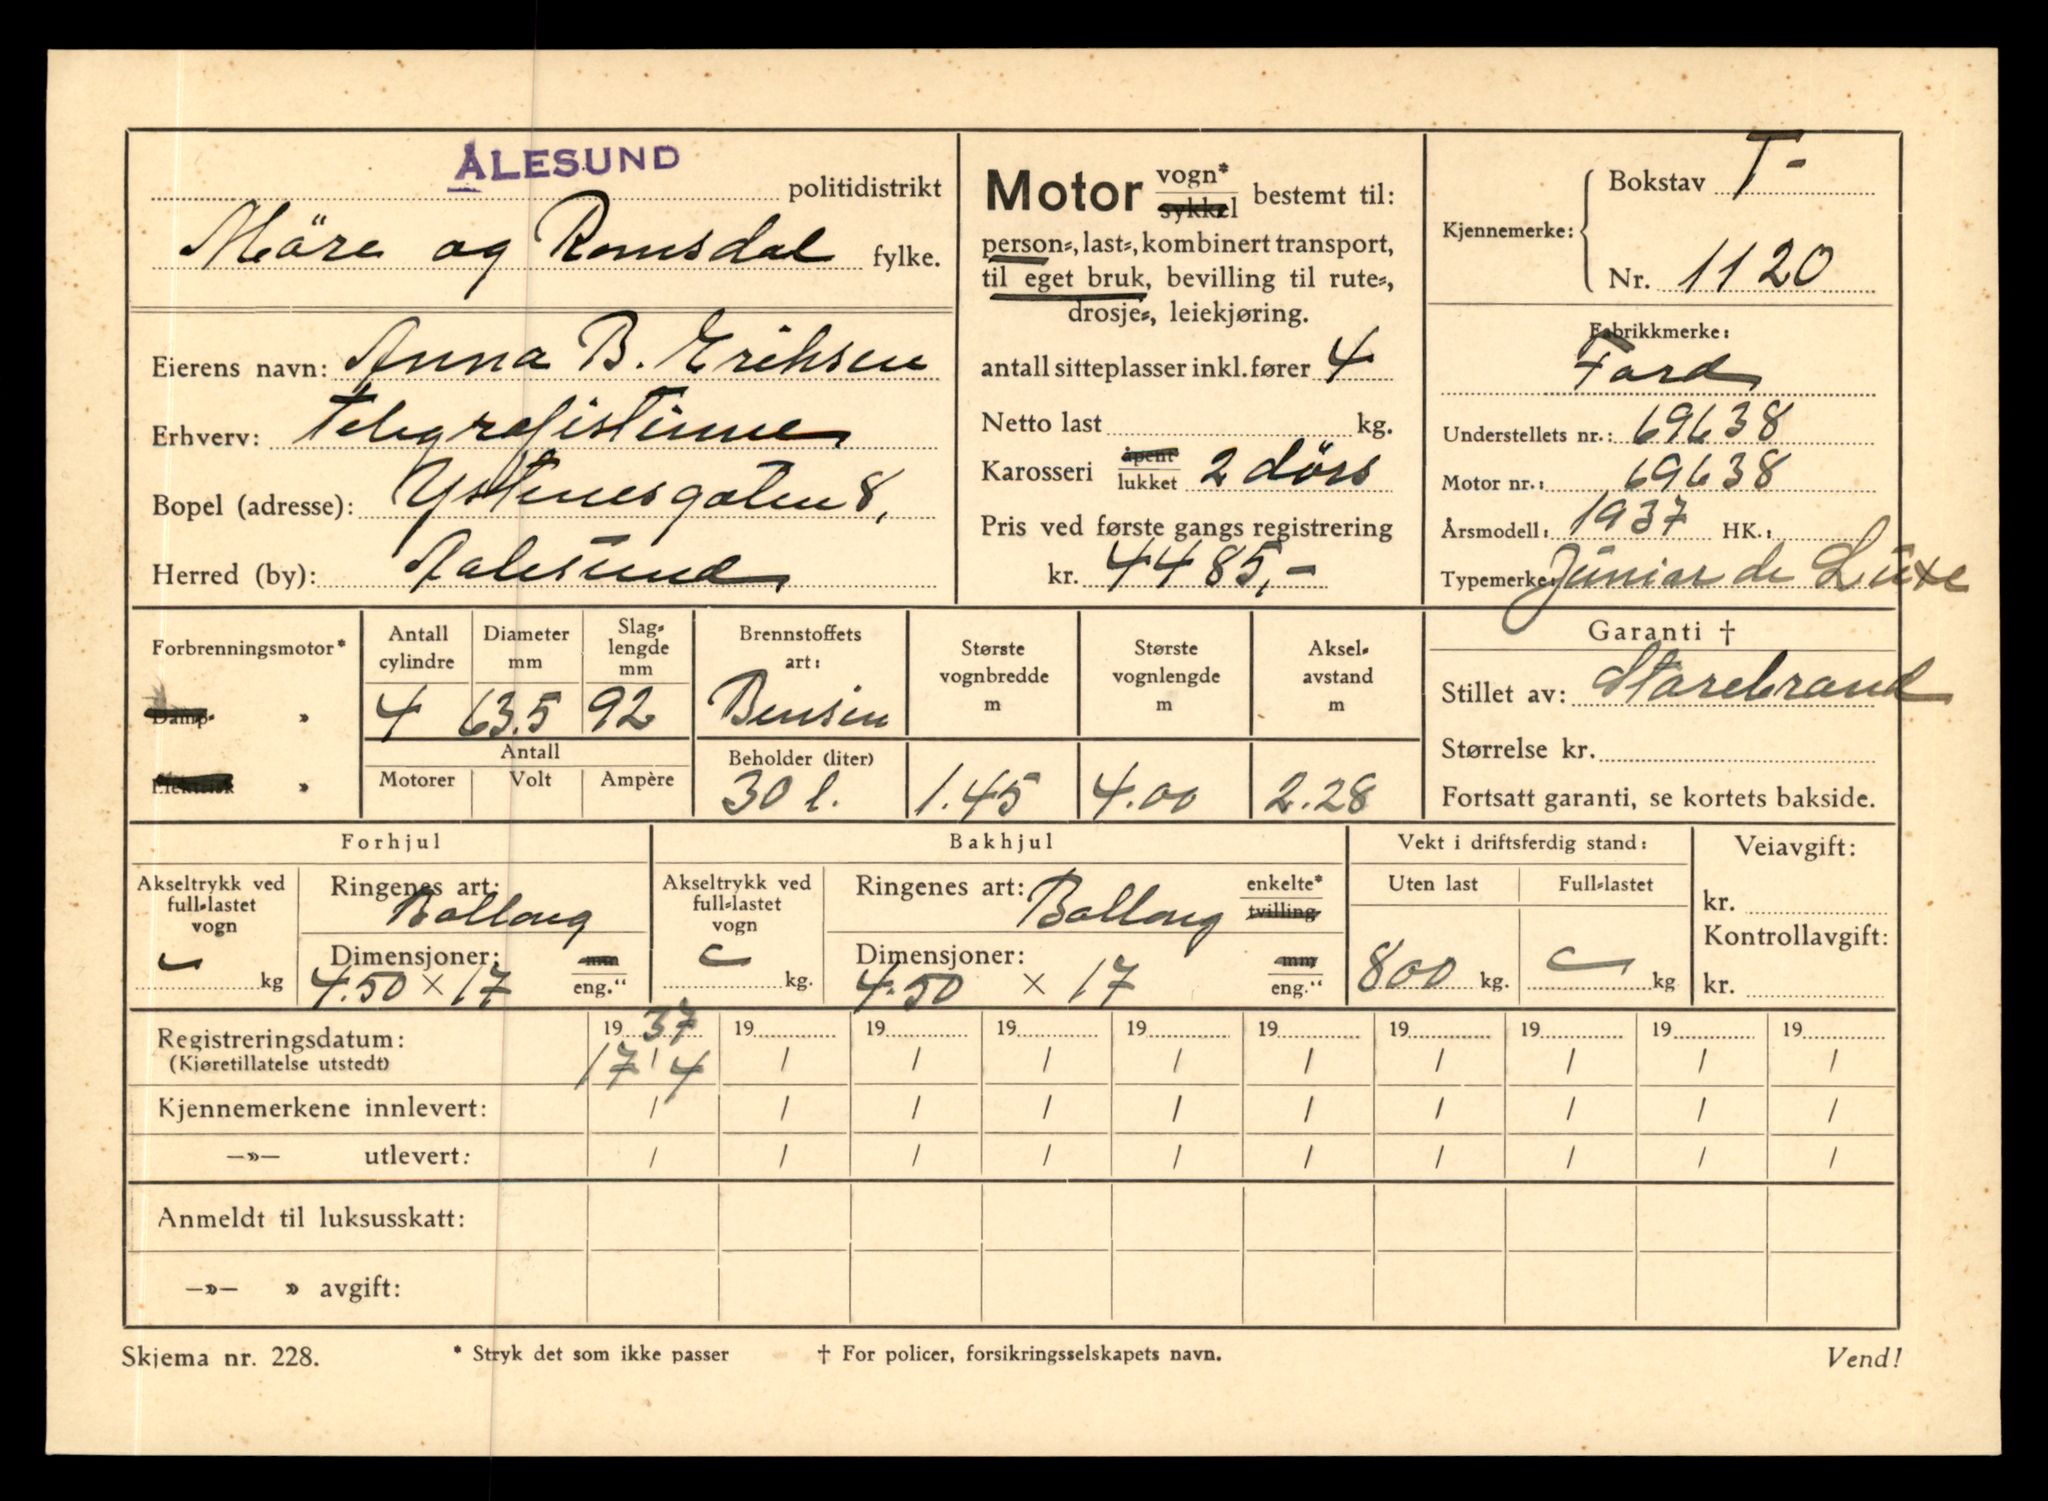 ÅLESUND
politidistrikt
Möre og Romsdal fylke.
Eierens navn: Anna B. Eriksen
Erhverv: telegrafistinne
Bopel (adresse): Ystenesgaten 8,
Herred (by): Aalesund
Motor vogn* sykkel bestemt til:
person-, last-, kombinert transport,
til eget bruk, bevilling til rute-,
drosje-, leiekjøring.
antall sitteplasser inkl. fører 4
Netto last kg.
Karosseri åpent lukket 2 dörs
Pris ved første gangs registrering
kr. 4485,-
Kjennemerke: Bokstav T-
Nr. 1120
Fabrikkmerke:
Ford
Understellets nr.: 69638
Motor nr.: 69638
Årsmodell: 1937 HK.:
Typemerke: Junior de Luxe
Forbrenningsmotor*
Damp- »
Elektrisk »
Antall cylindre
Diameter mm
Slaglengde mm
4 63.5 92
Antall
Motorer Volt Ampère
Brennstoffets art:
Bensin
Beholder (liter)
30 l.
Største vognbredde m
1.45
Største vognlengde m
4.00
Aksel-avstand m
2.28
Garanti †
Stillet av: Storebrand
Størrelse kr.
Fortsatt garanti, se kortets bakside.
Forhjul
Akseltrykk ved full-lastet vogn
kg
Ringenes art:
Ballong
Dimensjoner: mm eng."
4.50 × 17
Bakhjul
Akseltrykk ved full-lastet vogn
kg.
Ringenes art: Ballong enkelte* tvilling
Dimensjoner: mm eng."
4.50 × 17
Vekt i driftsferdig stand:
Uten last Full-lastet
800 kg. kg
Veiavgift:
kr.
Kontrollavgift:
kr.
Registreringsdatum: 1937 19 19 19 19 19 19 19 19 19
(Kjøretillatelse utstedt) 17/4 / / / / / / / / /
Kjennemerkene innlevert: / / / / / / / / / /
—»— utlevert: / / / / / / / / / /
Anmeldt til luksusskatt:
—»— » avgift:
Skjema nr. 228. * Stryk det som ikke passer † For policer, forsikringsselskapets navn. Vend!